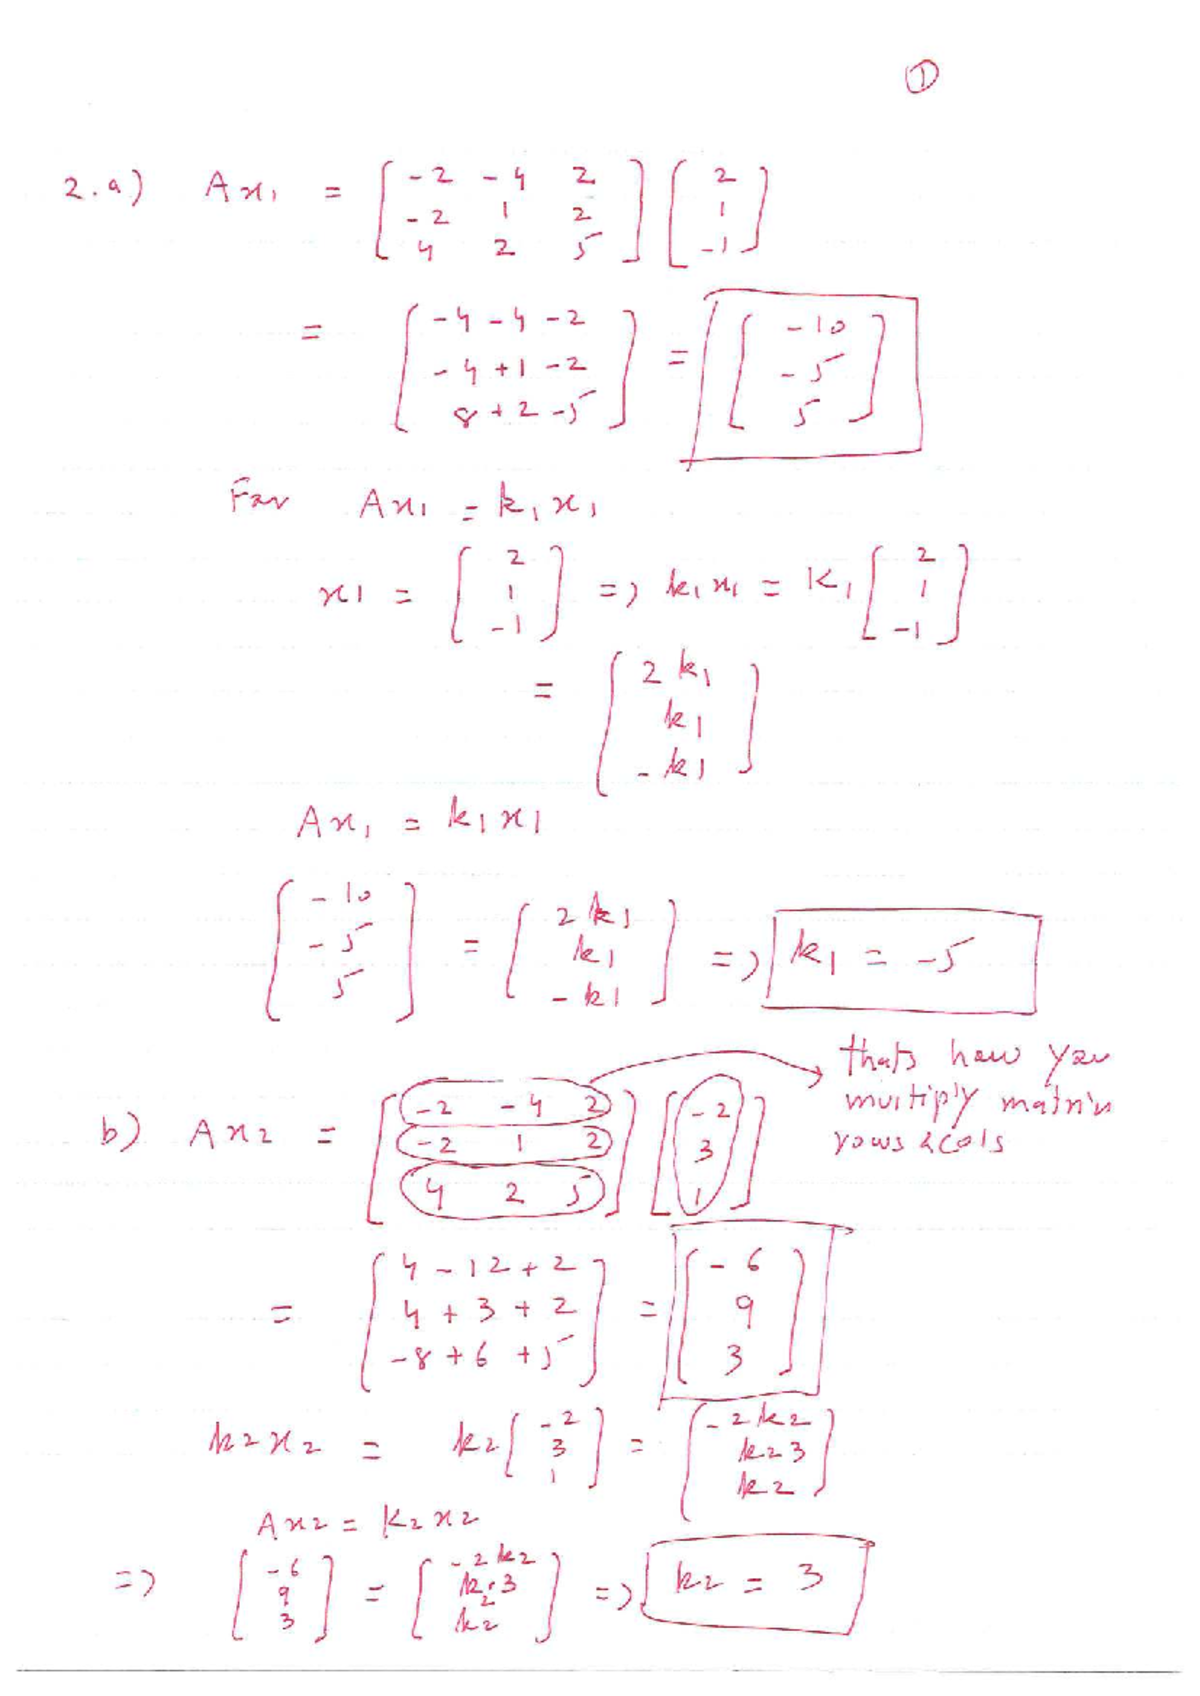 ①
2.a) Ax₁ = [ -2 -4 2 ; -2 1 2 ; 4 2 5 ] [ 2 ; 1 ; -1 ]
= [ -4 -4 -2 ; -4 +1 -2 ; 8 +2 -5 ] = [ -10 ; -5 ; 5 ]
For Ax₁ = k₁x₁
x1 = [ 2 ; 1 ; -1 ] => k₁x₁ = K₁ [ 2 ; 1 ; -1 ]
= [ 2k₁ ; k₁ ; -k₁ ]
Ax₁ = k₁x1
[ -10 ; -5 ; 5 ] = [ 2k1 ; k1 ; -k1 ] => k₁ = -5
thats how you
multiply matrix
rows & cols
b) Ax2 = [ -2 -4 2 ; -2 1 2 ; 4 2 5 ] [ -2 ; 3 ; 1 ]
= [ 4 -12 +2 ; 4 +3 +2 ; -8 +6 +5 ] = [ -6 ; 9 ; 3 ]
k2x2 = k2 [ -2 ; 3 ; 1 ] = [ -2k2 ; k23 ; k2 ]
Ax2 = K2x2
=> [ -6 ; 9 ; 3 ] = [ -2k2 ; k2·3 ; k2 ] => k2 = 3